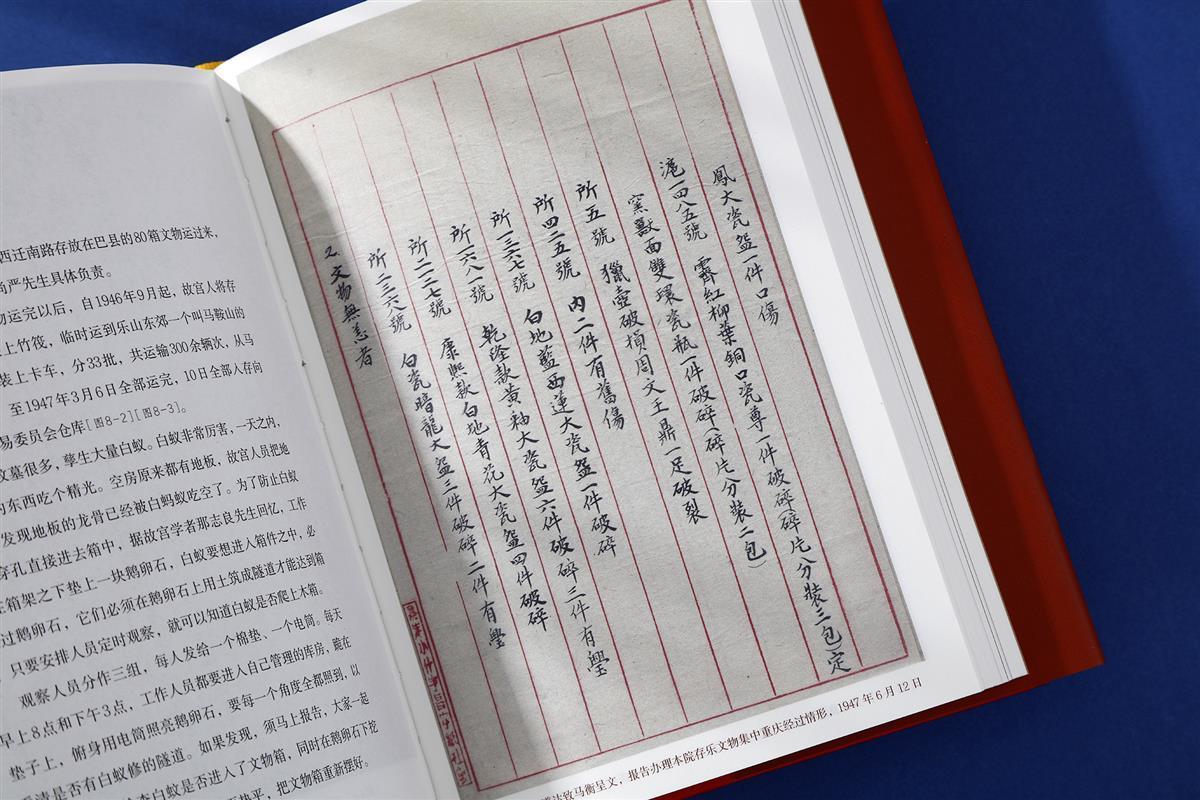 西迁南路存放在巴县的80箱文物运过来，
尚严先生具体负责。
物运完以后，自1946年9月起，故宫人将存
上竹筏，临时运到乐山东郊一个叫马鞍山的
装上卡车，分33批，共运输300余辆次，从马
至1947年3月6日全部运完，10日全部入存向
易委员会仓库[图8-2][图8-3]。
坟墓很多，孳生大量白蚁。白蚁非常厉害，一天之内，
东西吃个精光。空房原来都有地板，故宫人员把地
发现地板的龙骨已经被白蚂蚁吃空了。为了防止白蚁
穿孔直接进去箱中，据故宫学者那志良先生回忆，工作
箱架之下垫上一块鹅卵石，白蚁要想进入箱件之中，必
过鹅卵石，它们必须在鹅卵石上用土筑成隧道才能达到箱
只要安排人员定时观察，就可以知道白蚁是否爬上木箱。
观察人员分作三组，每人发给一个棉垫，一个电筒。每天
早上8点和下午3点，工作人员都要进入自己管理的库房，跪在
垫子上，俯身用电筒照亮鹅卵石，要每一个角度全都照到，以
看清是否有白蚁修的隧道。如果发现，须马上报告，大家一起
查白蚁是否进入了文物箱，同时在鹅卵石下挖
垫平，把文物箱重新摆好。
鳳大瓷盌一件口傷
滬一八五號 霽紅柳葉銅口瓷尊一件破碎(碎片分裝三包)定
窯獸面雙環瓷瓶一件破碎(碎片分裝二包)
所五號 獵壺破損周文王鼎一足破裂
所四二五號 內二件有舊傷
所一三六七號 白地藍西蓮大瓷盌一件破碎
所一六八一號 乾隆款黃釉大瓷盌六件破碎三件有璺
所二二七號 康熙款白地青花大瓷盌四件破碎
所二三六號 白瓷暗龍大盌三件破碎二件有璺
2.文物無恙者
达致马衡呈文，报告办理本院存乐文物集中重庆经过情形，1947年6月12日